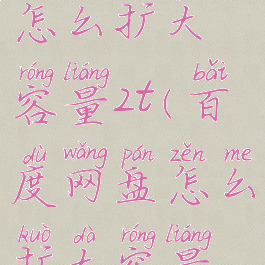 怎么扩大
róng liàng bǎi
容量2t(百
dù wǎng pán zěn me
度网盘怎么
kuò dà róng liàng
扩大容量